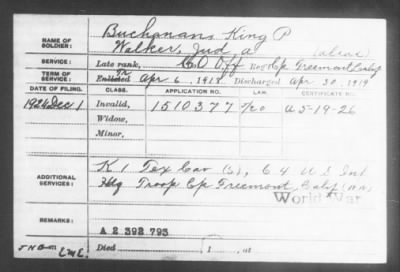 Buchanans King P
NAME OF SOLDIER: Walker, Jud, a (alias)
SERVICE: Late rank, C O Off Reg't Cp Freemont Calif
TERM OF SERVICE: Enlisted Apr 6, 1918. Discharged Apr 30, 1919
DATE OF FILING. CLASS. APPLICATION NO. LAW. CERTIFICATE NO.
1924 Dec 1 Invalid, 1510377 A 5-19-26
Widow,
Minor,
ADDITIONAL SERVICES: K 1 Tex Cav C 4 U S Inf
Hdq Troop Cp Freemont, Calif
World War
REMARKS: A 2 392 793
Died , at